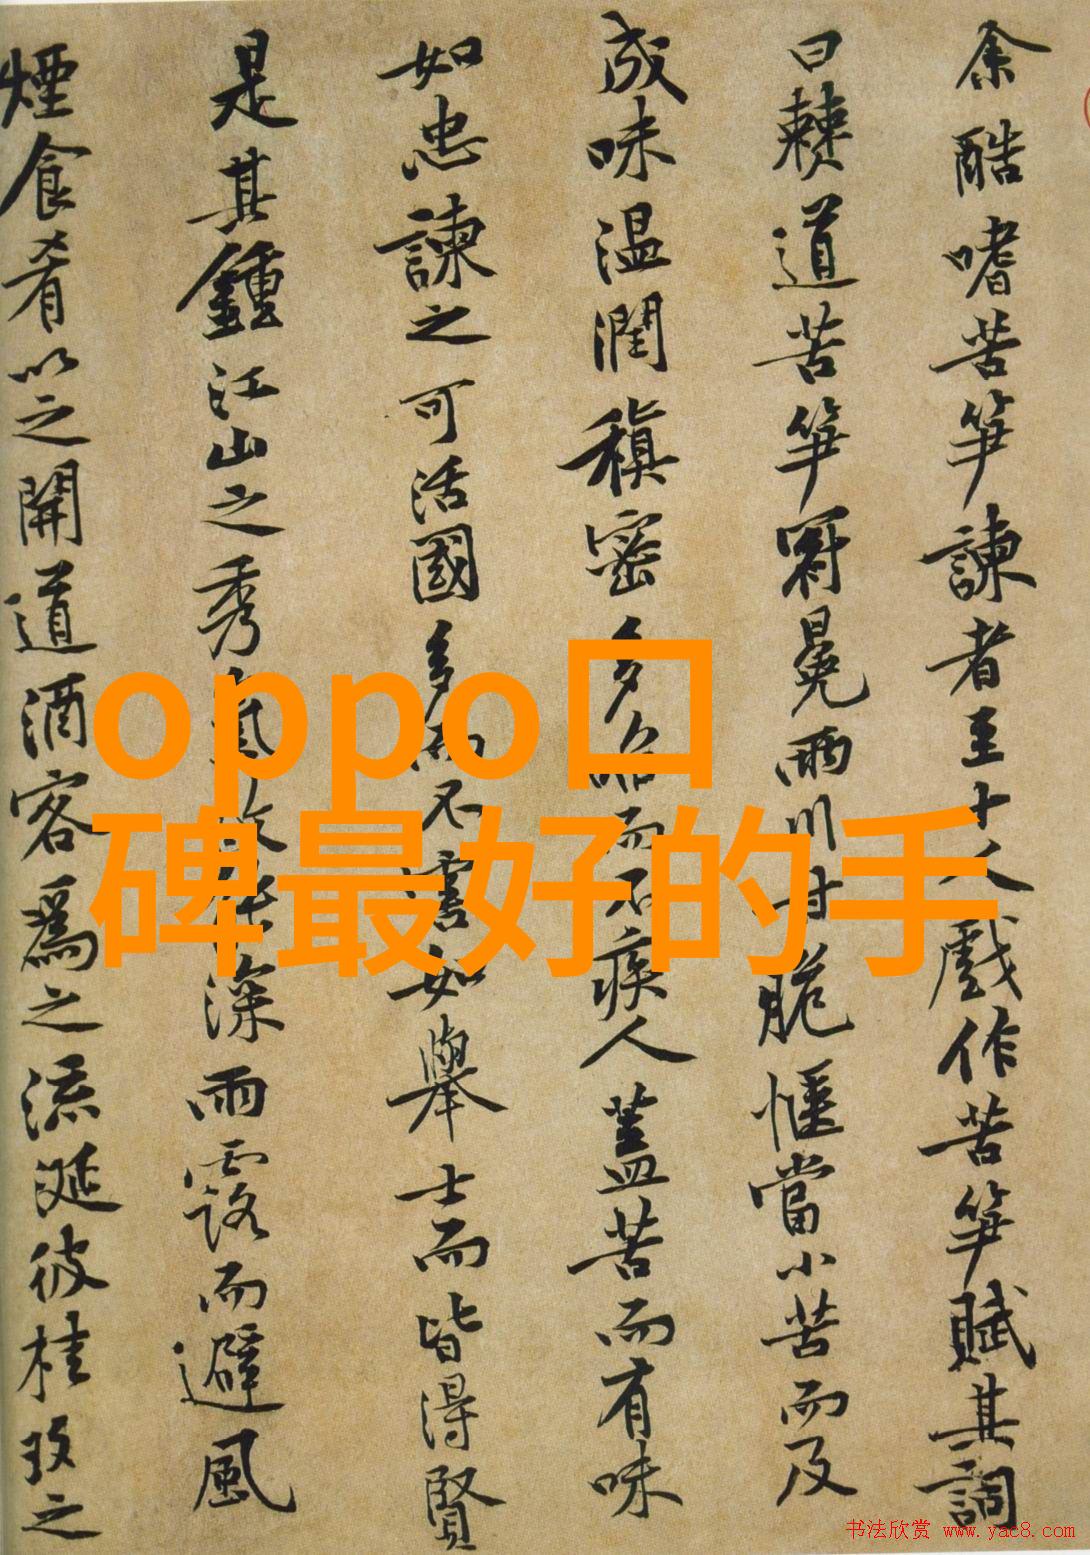 余酷嗜苦笋諫者至十人戲作苦笋賦其詞
曰僰道苦笋冠冕兩川甘脆愜當小苦而及
成味温潤稹密多啗而不疾人蓋苦而有味
如忠諫之可活國多而不害如舉士而皆得賢
是其鍾江山之秀氣故能深雨露而避風
煙食肴以之開道酒客爲之流涎彼桂玫之
oppo口
碑最好的手
书法欣赏 www.yac8.com